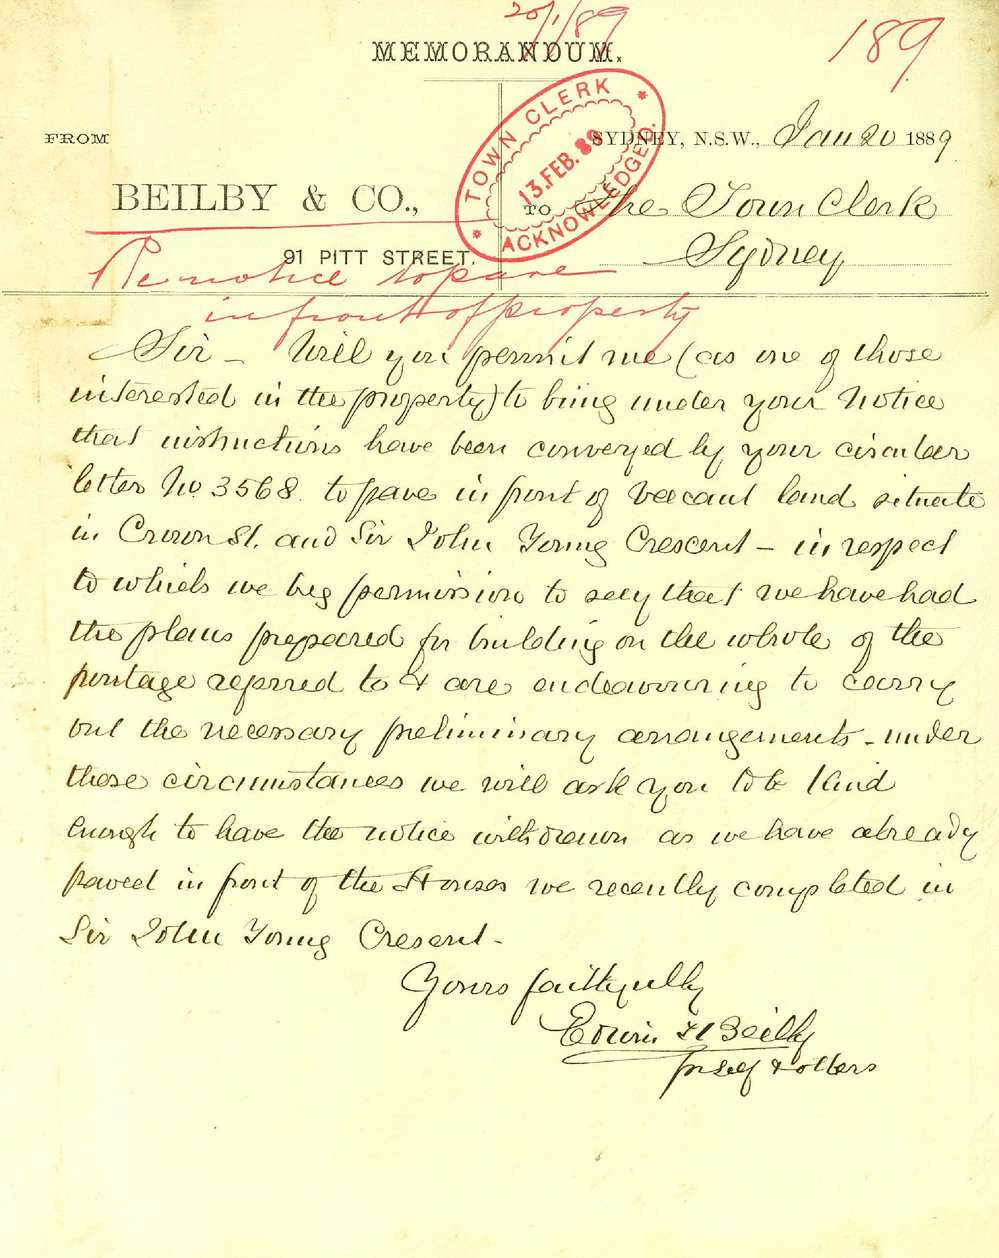 20/1/89
MEMORANDUM.
189
FROM
SYDNEY, N.S.W., Jan 20 1889
BEILBY & CO.,
TO The Town Clerk
91 PITT STREET.
Sydney
TOWN CLERK
13. FEB. 89
ACKNOWLEDGED.
Re notice to pave
in front of property
Sir - Will you permit me (as one of those
interested in the property) to bring under your Notice
that instructions have been conveyed by your circular
letter No 3568. to pave in front of vacant land situate
in Crown St. and Sir John Young Crescent - in respect
to which we beg permission to say that we have had
the plans prepared for building on the whole of the
frontage referred to & are endeavouring to carry
out the necessary preliminary arrangements - under
these circumstances we will ask you to be kind
enough to have the notice withdrawn as we have already
paved in front of the Houses we recently completed in
Sir John Young Cresent -
Yours faithfully
Edwin H Beilby
for self & others